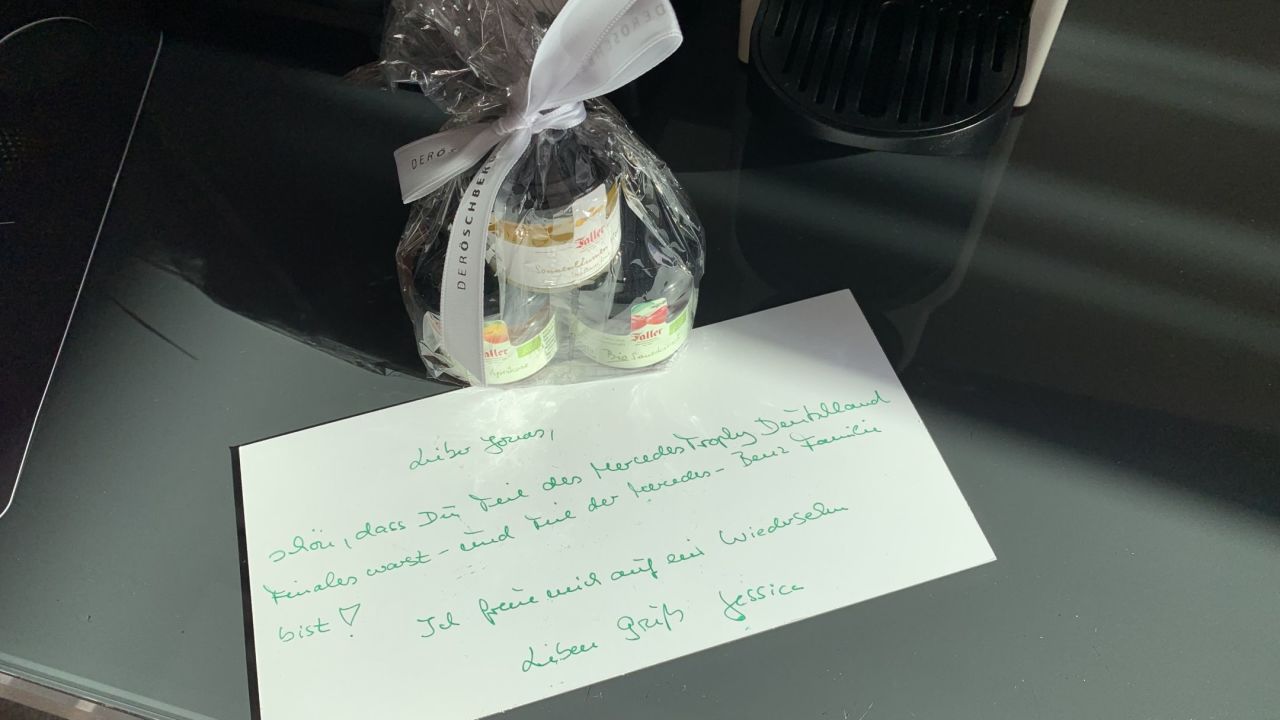 DERÖS
DERÖSCHBERG
DERÖSCH
Faller
Faller
Aprikose
Faller
Bio Sauerk
Lieber Jonas,
schön, dass Du Teil des MercedesTrophy Deutschland
Finales warst - und Teil der Mercedes-Benz Familie
bist!
Ich freue mich auf ein Wiedersehn
Lieben Gruß Jessica